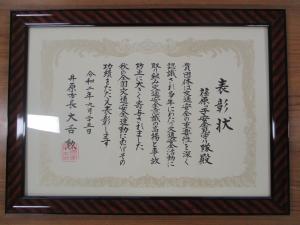 表彰状
篠原子安見守り隊殿
貴団体は交通安全の重要性を深く
認識され多年にわたり交通安全活動に
取り組み交通安全意識の高揚と事故
防止に大きく寄与されました
秋の全国交通安全運動にあたりその
功績をたたえ表彰します
令和二年九月二十五日
井原市長 大舌 勲